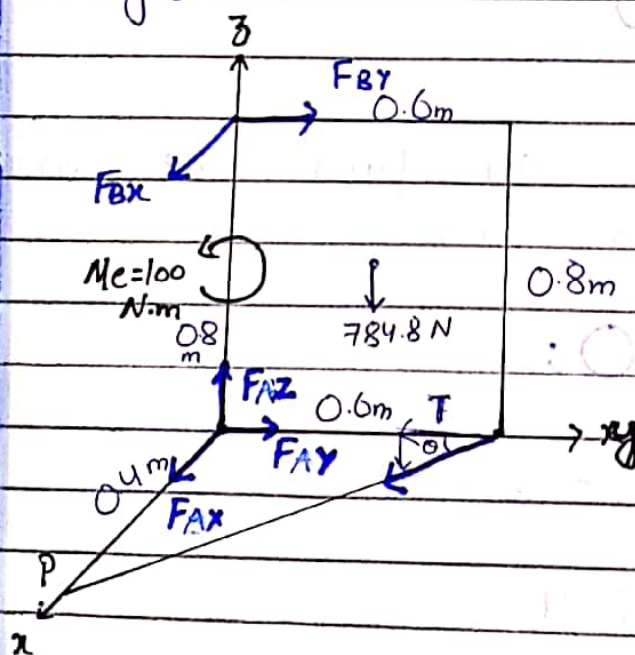 z
F_BY
0.6m
F_BX
Me=100
N.m
0.8m
784.8 N
0.8
m
F_AZ
0.6m
T
θ
y
F_AY
0.4m
F_AX
P
x